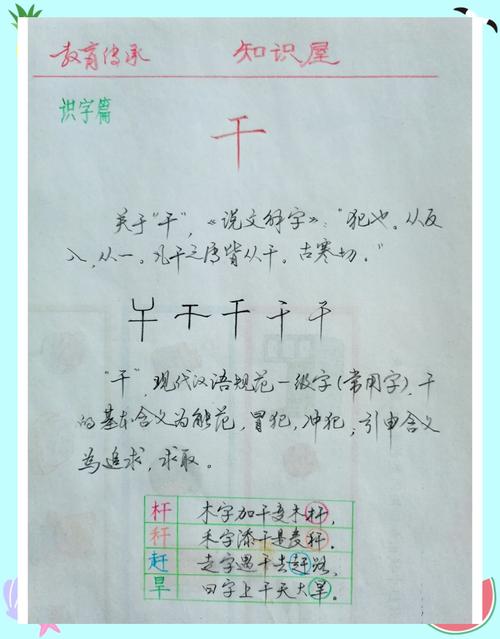 教育传承 知识屋
识字篇
干
关于“干”,《说文解字》:“犯也。从反
入,从一。凡干之属皆从干。古寒切。”
干 干 干 干 干
“干”,现代汉语规范一级字(常用字),干
的基本含义为触犯,冒犯,冲犯;引申含义
为追求,求取。
杆 木字加干变木杆,
秆 禾字添干是麦秆。
赶 走字遇干去赶路,
旱 日字上干天大旱。